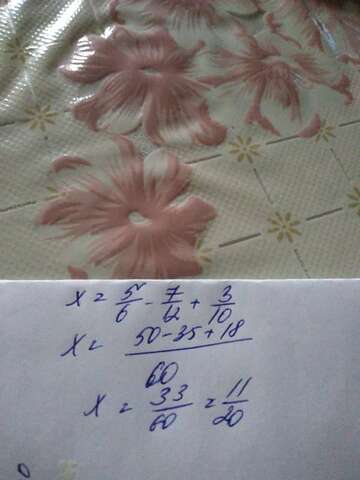 x = 5/6 - 7/12 + 3/10
x = 50-35+18/60
x = 33/60 = 11/20